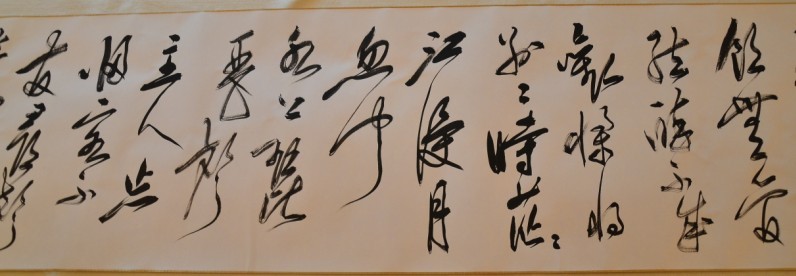 飲無管
絃醉不成
歡慘將
别〻時茫〻
江浸月
忽聞
水上琵
琶聲
主人忘
歸客不
發尋聲